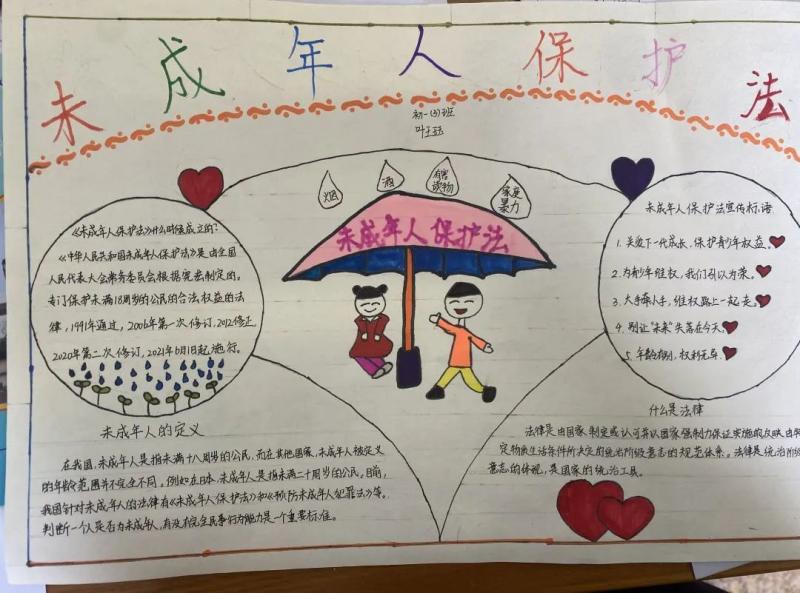 未成年人保护法
初一(3)班
叶
烟
酒
有害
读物
家庭
暴力
未成年人保护法
《未成年人保护法》什么时候成立的?
《中华人民共和国未成年人保护法》是由全国
人民代表大会常务委员会根据宪法制定的。
专门保护未满18周岁的公民的合法权益的法
律,1991年通过,2006年第一次修订,2012修正,
2020年第二次修订,2021年6月1日起施行。
未成年人保护法宣传标语
1.关爱下一代成长,保护青少年权益。
2.为青少年维权,我们引以为荣。
3.大手牵小手,维权路上一起走。
4.别让“未来”失落在今天。
5.年龄有别,权利无卑。
未成年人的定义
在我国,未成年人是指未满十八周岁的公民,而在其他国家,未成年人被定义
的年龄范围并不完全不同。例如在日本,未成年人是指未满二十周岁的公民。目前,
我国针对未成年人的法律有《未成年人保护法》和《预防未成年人犯罪法》等。
判断一个人是否为未成年人,有没有完全民事行为能力是一个重要标准。
什么是法律
法律是由国家制定或认可并以国家强制力保证实施的,反映由特
定物质生活条件所决定的统治阶级意志的规范体系。法律是统治阶级
意志的体现,是国家的统治工具。